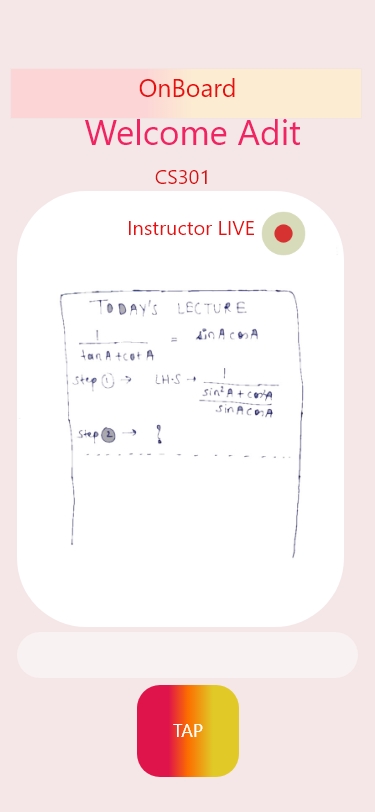 OnBoard
Welcome Adit
CS301
Instructor LIVE
TODAY'S LECTURE
1
tanA + cot A
= sinA cosA
Step ① → LH·S → 1
sin²A + cos²A
sinA cosA
Step ② → ?
TAP